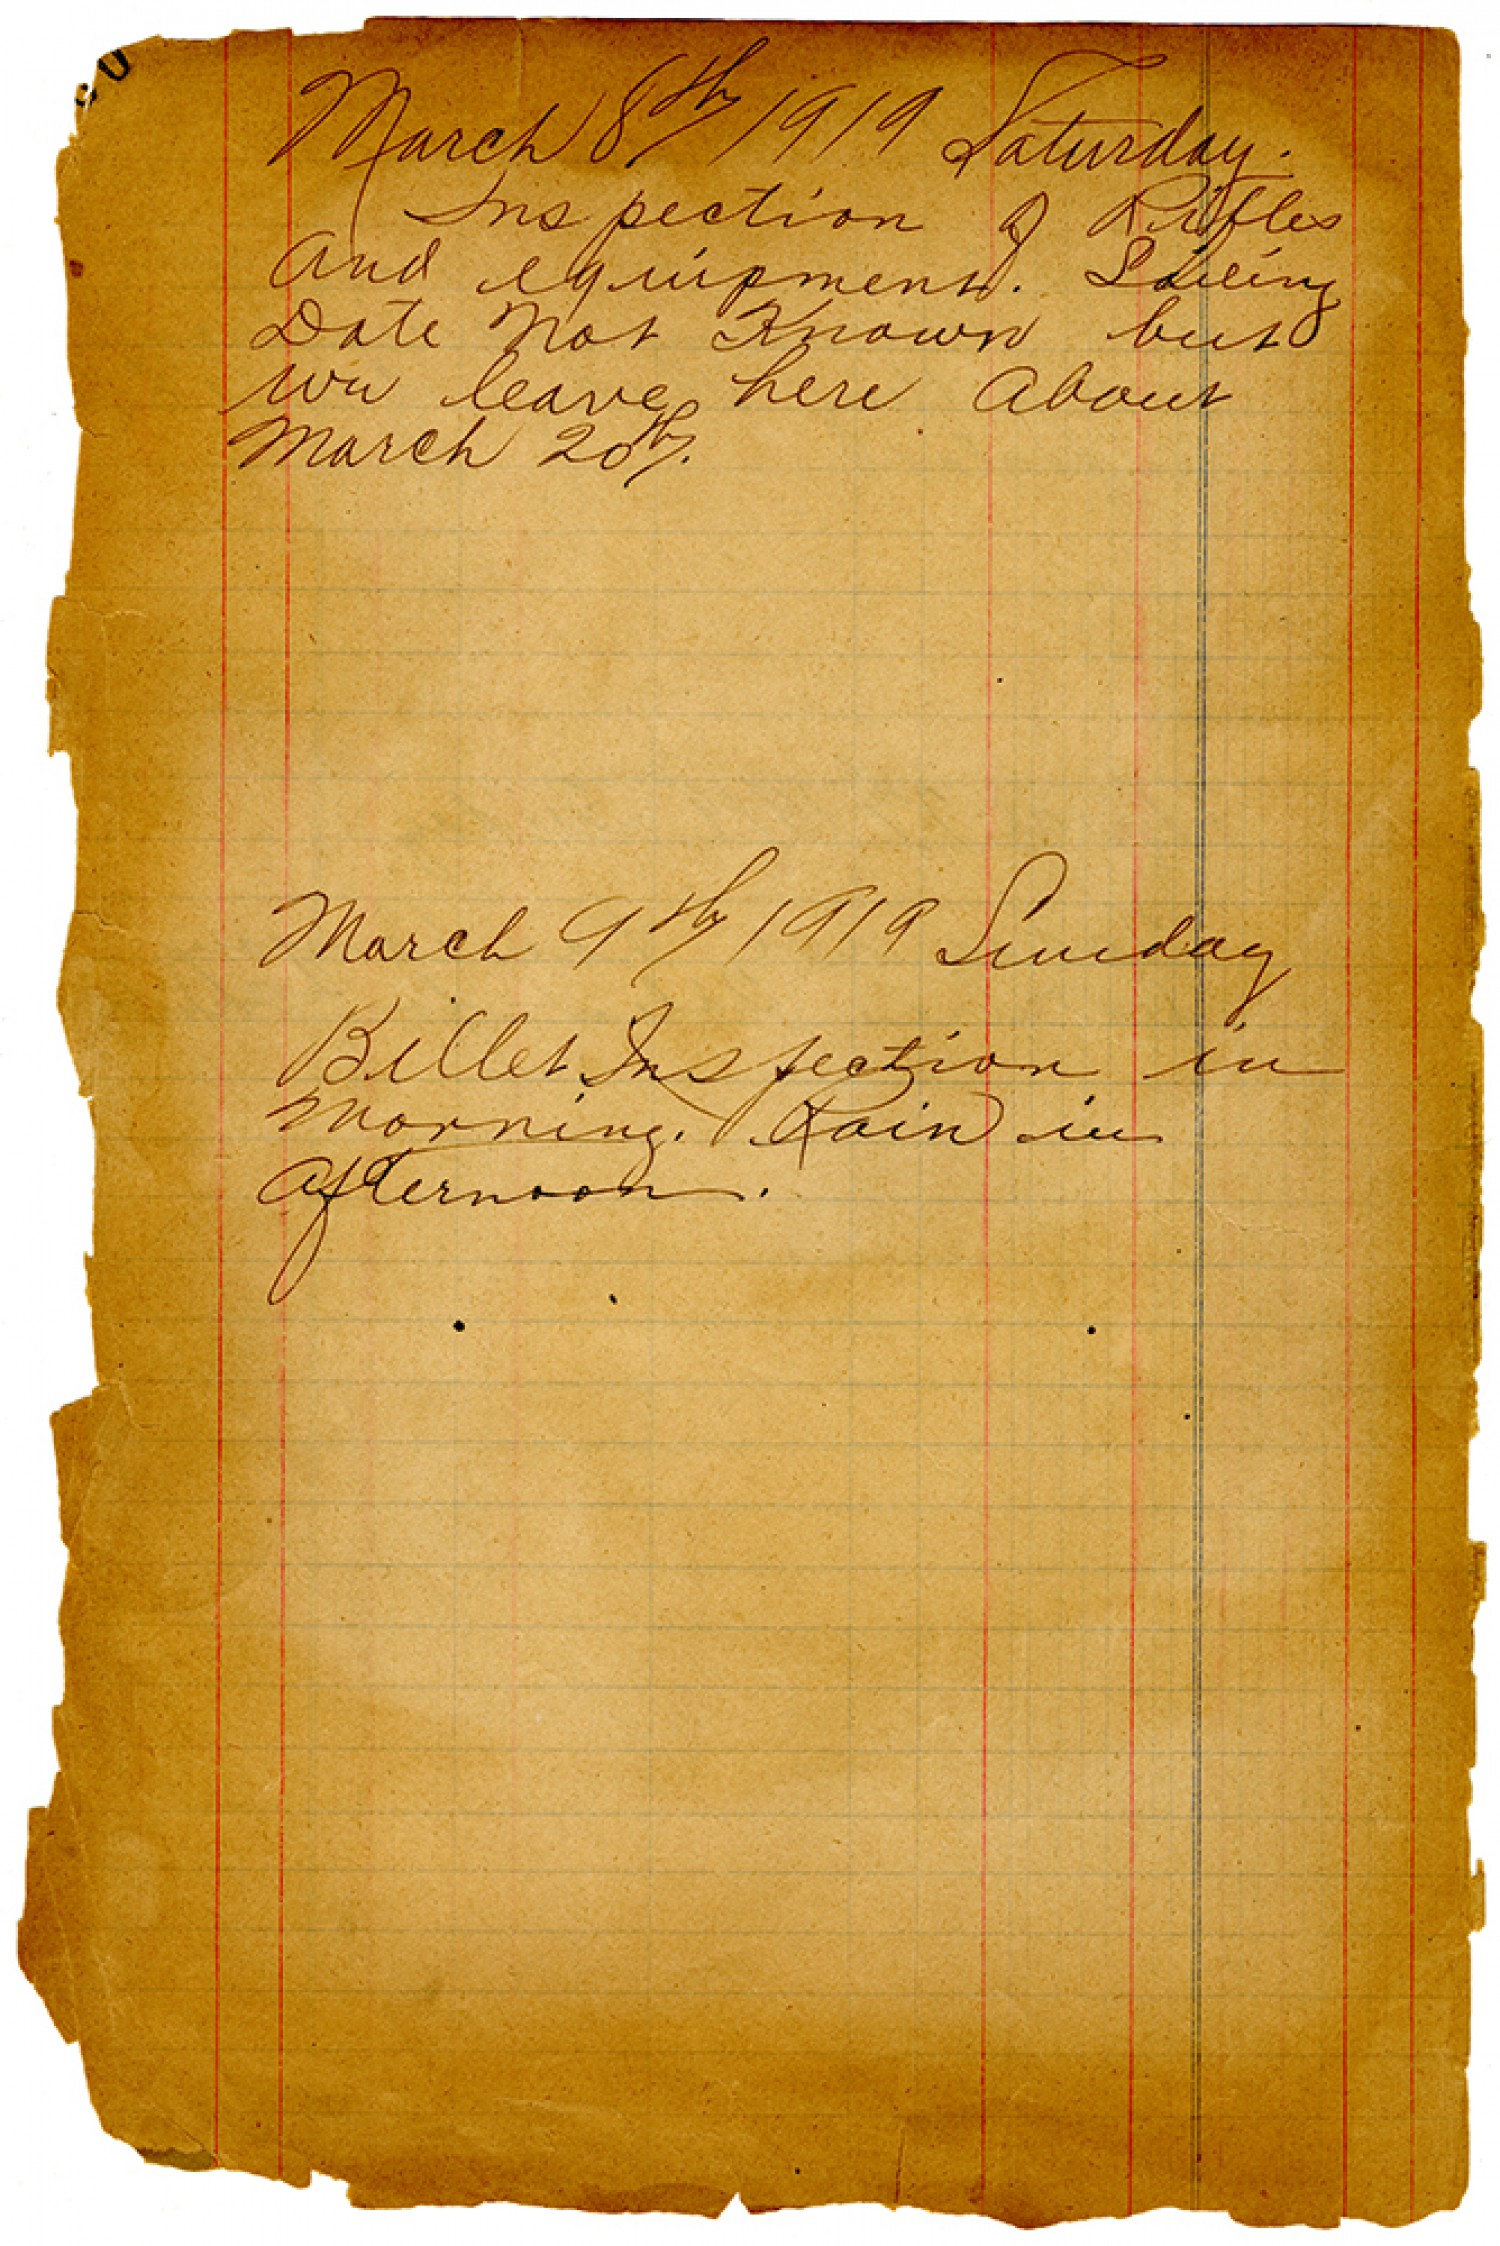 March 8th 1919 Saturday.
Inspection of Rifles
and equipment. Sailing
Date Not Known but
we leave here about
March 20th.
March 9th 1919 Sunday
Billet Inspection in
Morning. Rain in
afternoon.